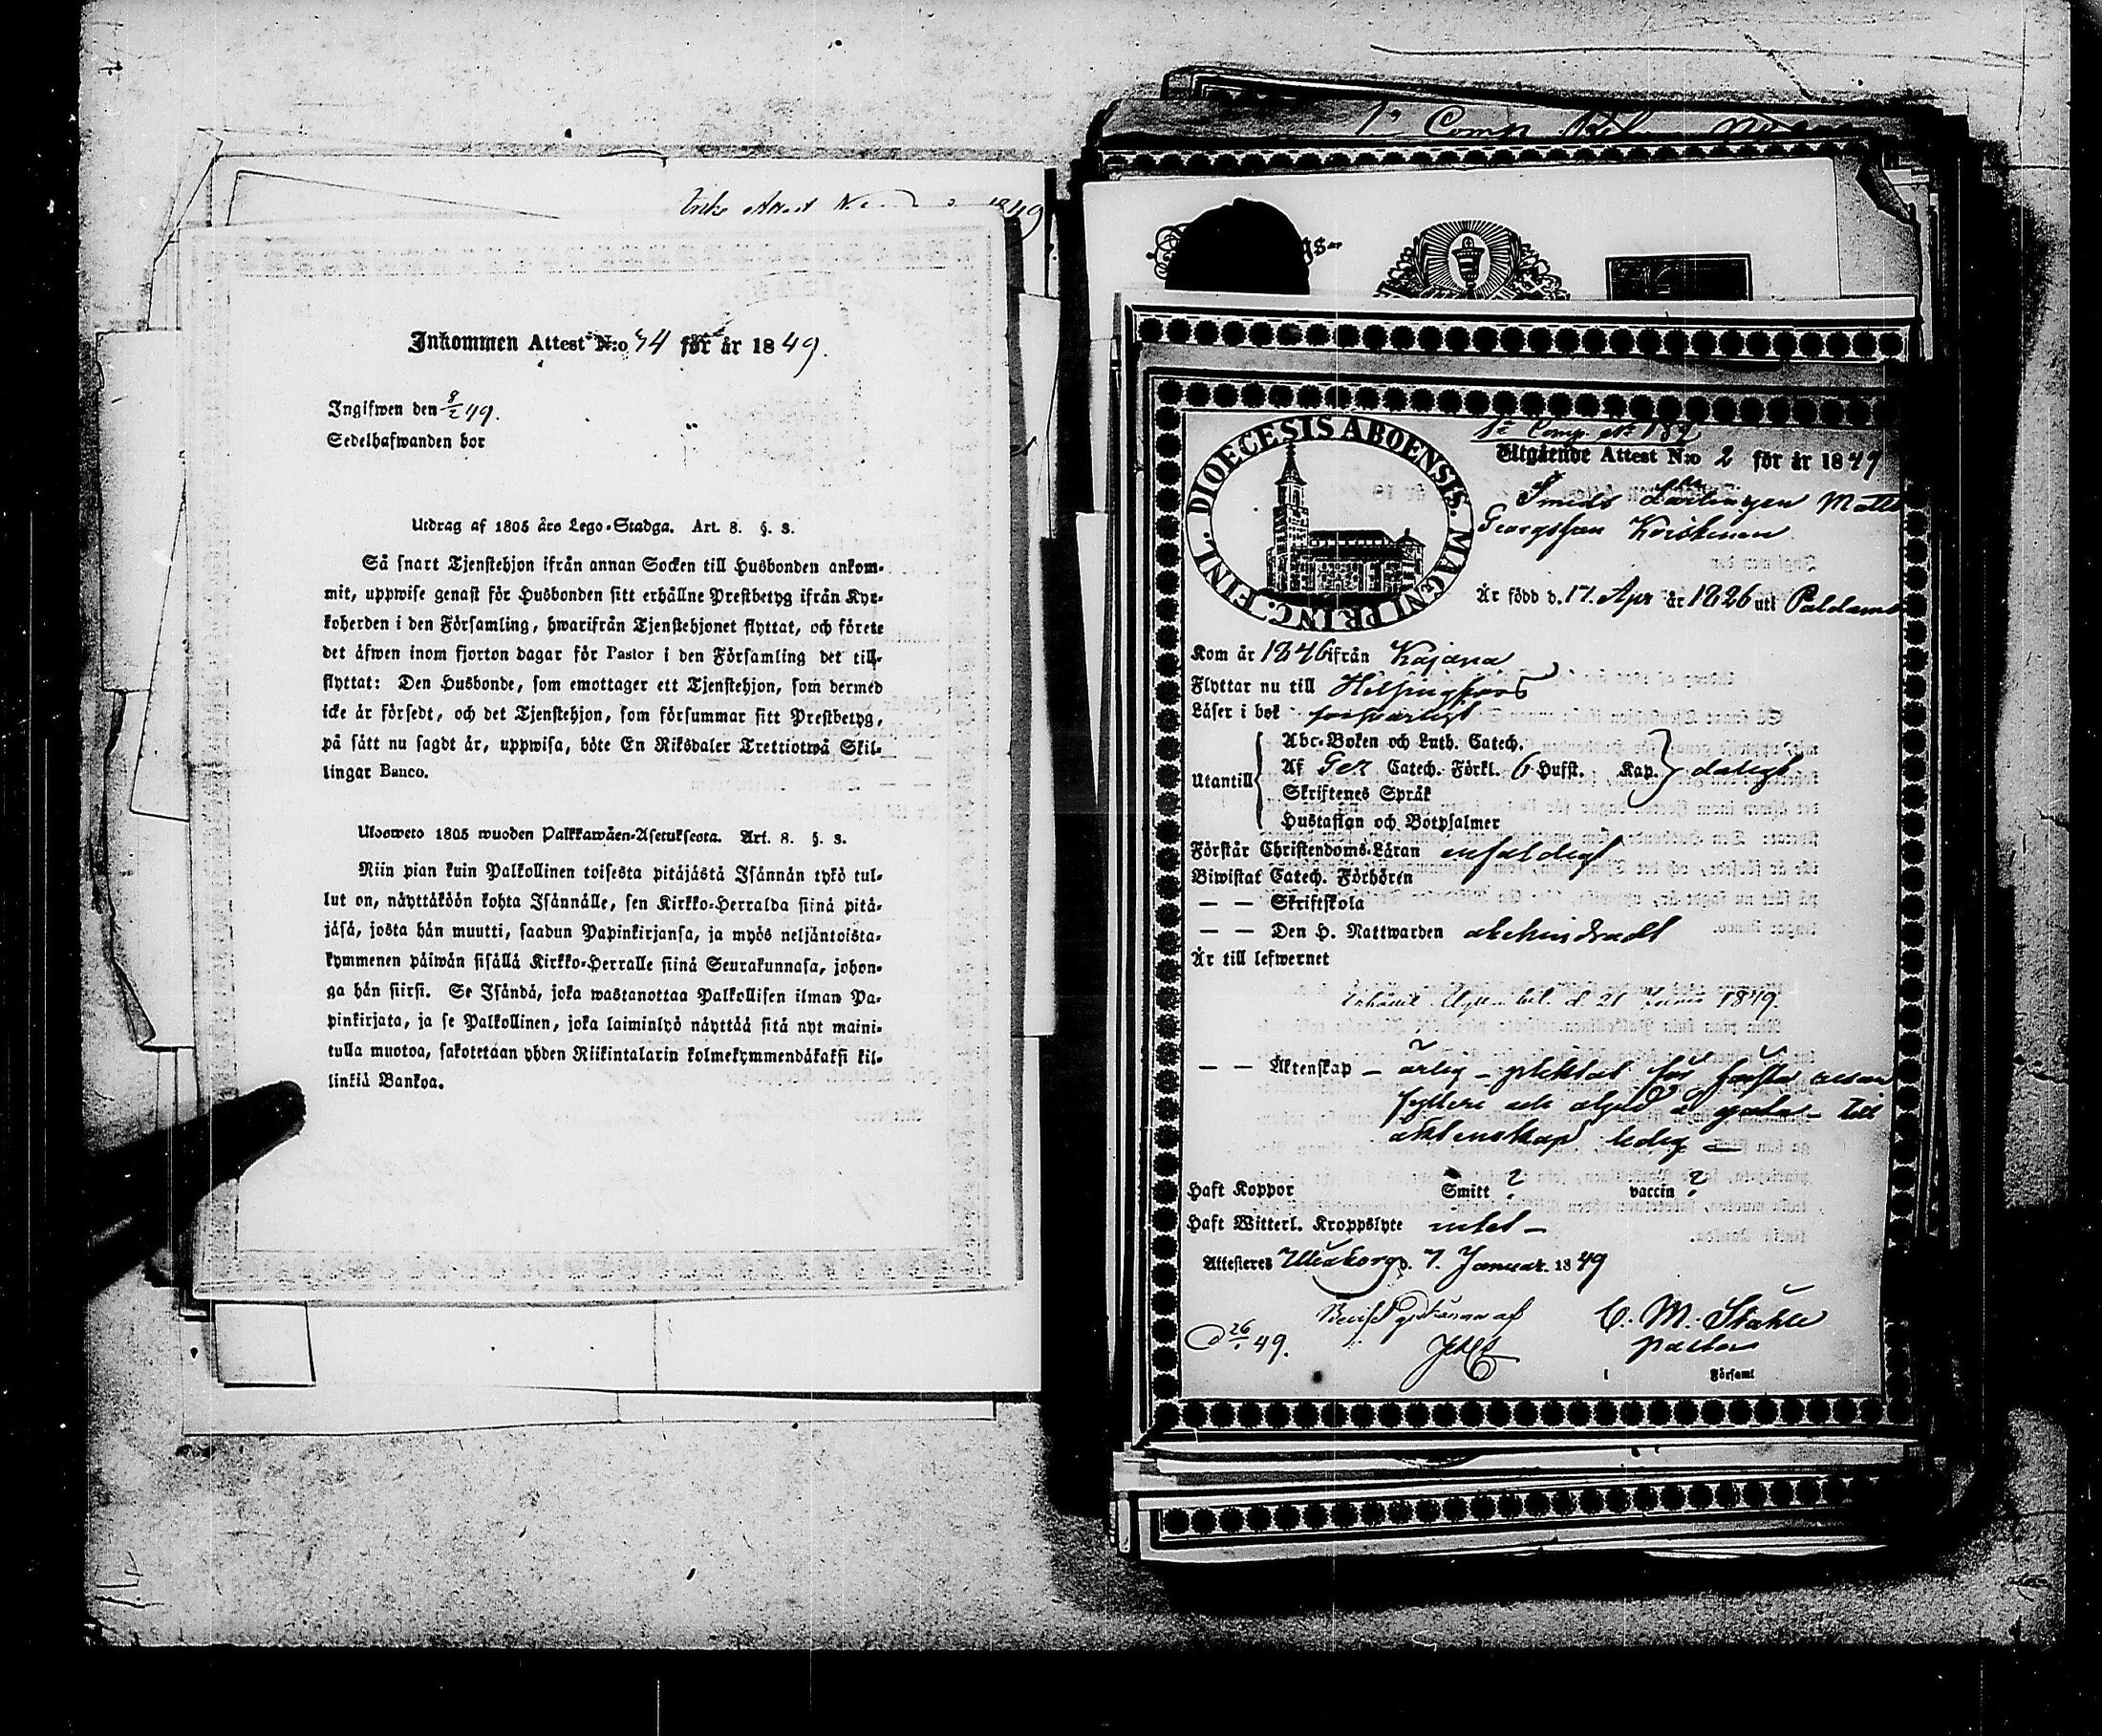 1849
Inkommen Attest N:o 44 för år 1849.
Ingifwen den 8/2 49.
Sedelhafwanden bor
Utdrag af 1805 års Lego-Stadga. Art. 8. §. 3.
Så snart Tjenstehjon ifrån annan Socken till Husbonden ankom-
mit, uppwise genast för Husbonden sitt erhållne Prestbetyg ifrån Kyr-
koherden i den Församling, hwarifrån Tjenstehjonet flyttat, och förete
det äfwen inom fjorton dagar för Pastor i den Församling det till-
flyttat: Den Husbonde, som emottager ett Tjenstehjon, som dermed
icke är försedt, och det Tjenstehjon, som försummar sitt Prestbetyg,
på sätt nu sagdt är, uppwisa, böte En Riksdaler Trettiotwå Skil-
lingar Banco.
Ulosweto 1805 wuoden Palkkawäen-Asetuksesta. Art. 8. §. 3.
Niin pian kuin Palkollinen toisesta pitäjästä Isännän tykö tul-
lut on, näyttäköön kohta Isännälle, sen Kirkko-Herralda siinä pitä-
jäsä, josta hän muutti, saadun Papinkirjansa, ja myös neljäntoista-
kymmenen päiwän sisällä Kirkko-Herralle siinä Seurakunnasa, johon-
ga hän siirsi. Se Isändä, joka wastanottaa Palkollisen ilman Pa-
pinkirjata, ja se Palkollinen, joka laiminlyö näyttää sitä nyt maini-
tulla muotoa, sakotetaan yhden Riikintalarin kolmekymmendäkaksi kil-
linkiä Bankoa.
1a Comp
DIOECESIS ABOENSIS. MAGNI PRINC. FINL.
1a Comp
Utgående Attest N:o 2 för år 1849
Smeds Lärlingen Matts
Georgsson Keiskinen
Är född d. 17. Apr år 1826 uti Paldamo
Kom år 1846 ifrån Kajana
Flyttar nu till Helsingfors
Läser i bok försvarligt
Abc-Boken och Luth. Catech.
Utantill Af Catech. Förkl. 6 Hufst. Kap. dåligt
Skriftenes Språk
Hustaflan och Botpsalmer
Förstår Christendoms-Läran enfaldigt
Biwistat Catech. Förhören
— — Skriftskola
— — Den H. Nattwarden obehindradt
Är till lefwernet
d 21 Junii 1849.
— — Äktenskap — ärlig — pliktat för första resan
fylleri och – till
äktenskap ledig —
Haft Koppor Smitt ? vaccin ?
Haft Witterl. Kroppslyte intet —
Attesteres Uleåborg d. 7. Januar. 1849
C. M. Ståhle
pastor
26 49.
i Församl